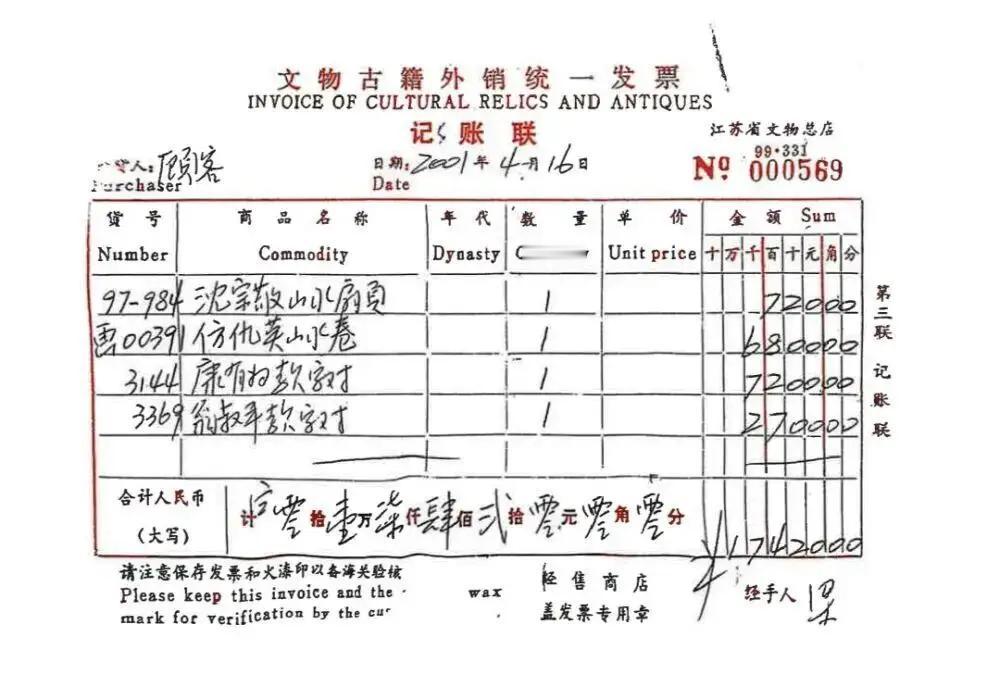 文物古籍外销统一发票
INVOICE OF CULTURAL RELICS AND ANTIQUES
记账联
江苏省文物总店
99·331
Nº 000569
货人：顾客
Purchaser
日期：2001年4月16日
Date
货号 商品名称 年代 数量 单价 金额 Sum
Number Commodity Dynasty Unit price 十万千百十元角分
97-984 沈宗敬山水扇页 1 72000
画00391 仿仇英山水卷 1 680000
3144 康有为款字对 1 720000
3369 翁叔平款字对 1 270000
合计人民币
（大写）
计零拾壹万柒仟肆佰贰拾零元零角零分
¥1742000
第三联 记账联
请注意保存发票和火漆印以备海关验核
Please keep this invoice and the wax
mark for verification by the cus
经售商店
盖发票专用章
经手人